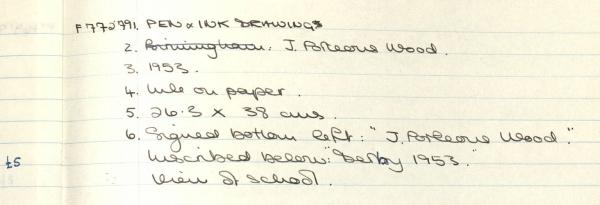 F772991. PEN & INK DRAWINGS
2. Birmingham. J. Porteous Wood.
3. 1953.
4. Ink on paper.
5. 26.3 x 38 cms.
6. Signed bottom left: "J. Porteous Wood."
Inscribed below: "Derby 1953."
£5
View of school.